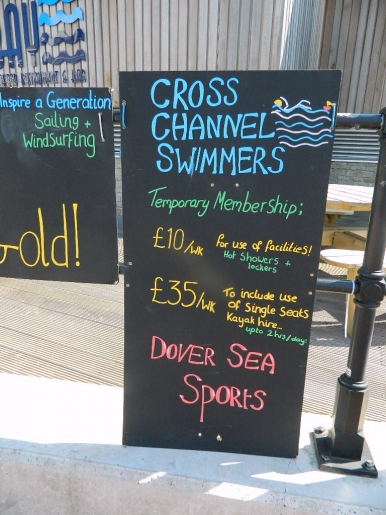 Inspire a Generation
Sailing +
Windsurfing
Gold!
CROSS
CHANNEL
SWIMMERS
Temporary Membership;
£10/WK For use of facilities!
Hot Showers +
lockers
£35/WK To include use
of Single Seats
Kayak hire...
upto 2hrs/day!
DOVER SEA
SPORTS